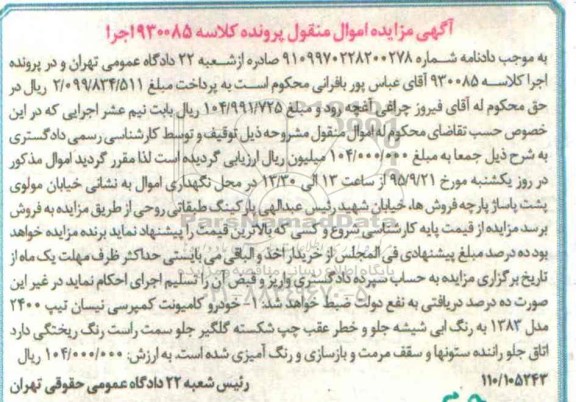 آگهی مزایده اموال منقول پرونده کلاسه ۹۳۰۰۸۵ اجرا
به موجب دادنامه شماره ۹۱۰۹۹۷۰۲۲۸۲۰۰۲۷۸ صادره از شعبه ۲۲ دادگاه عمومی تهران و در پرونده
اجرا کلاسه ۹۳۰۰۸۵ آقای عباس پور بافرانی محکوم است به پرداخت مبلغ ۲/۰۹۹/۸۳۴/۵۱۱ ریال در
حق محکوم له آقای فیروز چراغی آغچه رود و مبلغ ۱۰۴/۹۹۱/۷۲۵ ریال بابت نیم عشر اجرایی که در این
خصوص حسب تقاضای محکوم له اموال منقول مشروحه ذیل توقیف و توسط کارشناسی رسمی دادگستری
به شرح ذیل جمعا به مبلغ ۱۰۴/۰۰۰/۰۰۰ میلیون ریال ارزیابی گردیده است لذا مقرر گردید اموال مذکور
در روز یکشنبه مورخ ۹۵/۹/۲۱ از ساعت ۱۳ الی ۱۳/۳۰ در محل نگهداری اموال به نشانی خیابان مولوی
پشت پاساژ پارچه فروش ها، خیابان شهید رئیس عبدالهی پارکینگ طبقاتی روحی از طریق مزایده به فروش
برسد مزایده از قیمت پایه کارشناسی شروع و کسی که بالاترین قیمت را پیشنهاد نماید برنده مزایده خواهد
بود ده درصد مبلغ پیشنهادی فی المجلس از خریدار اخذ و الباقی می بایستی حداکثر ظرف مهلت یک ماه از
تاریخ برگزاری مزایده به حساب سپرده دادگستری واریز و قبض آن را تسلیم اجرای احکام نماید در غیر این
صورت ده درصد دریافتی به نفع دولت ضبط خواهد شد: ۱- خودرو کامیونت کمپرسی نیسان تیپ ۲۴۰۰
مدل ۱۳۸۳ به رنگ ابی شیشه جلو و خطر عقب چپ شکسته گلگیر جلو سمت راست رنگ ریختگی دارد
اتاق جلو راننده ستونها و سقف مرمت و بازسازی و رنگ آمیزی شده است. به ارزش: ۱۰۴/۰۰۰/۰۰۰ ریال
۱۱۰/۱۰۵۲۴۳ رئیس شعبه ۲۲ دادگاه عمومی حقوقی تهران
ParsNamadData
پایگاه اطلاع رسانی مناقصه و مزایده